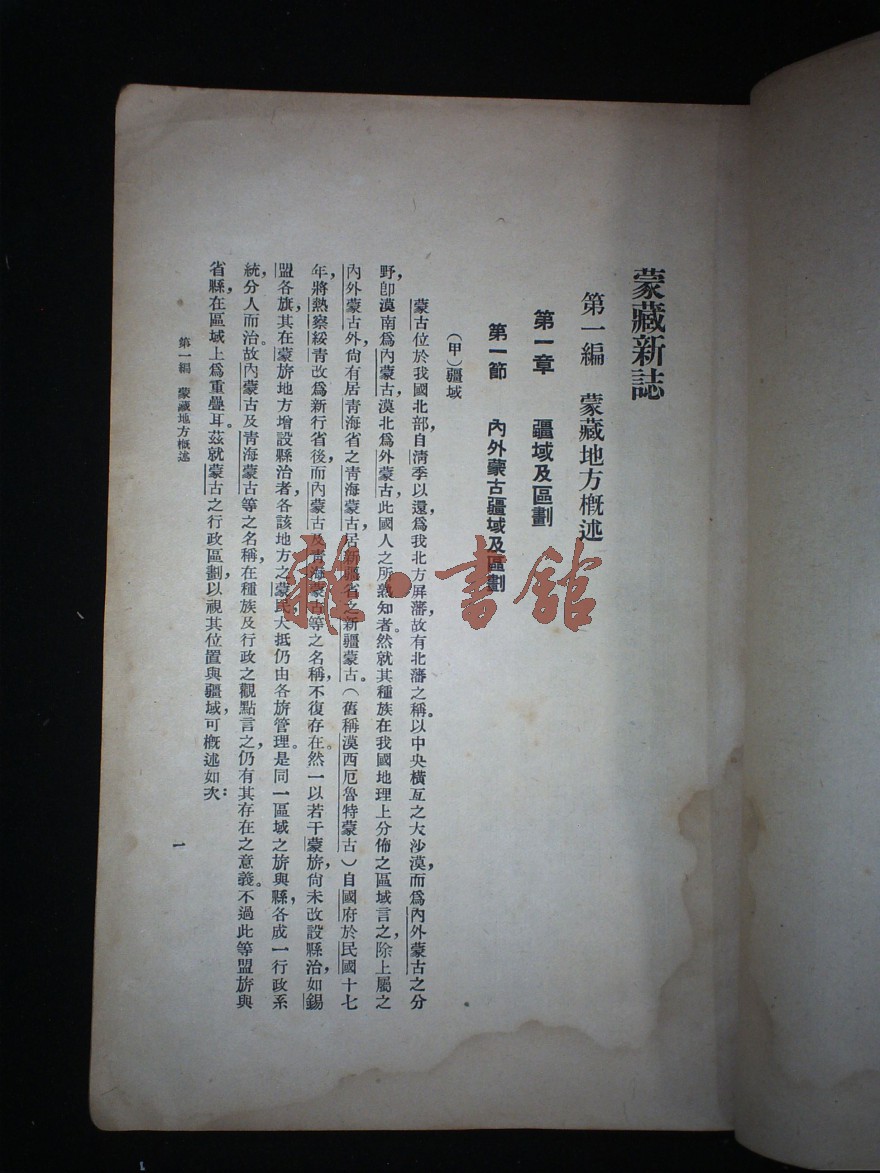 蒙藏新誌
第一編　蒙藏地方槪述
第一章　疆域及區劃
第一節　內外蒙古疆域及區劃
（甲）疆域
蒙古位於我國北部，自清季以還，爲我北方屏藩，故有北藩之稱。以中央橫亙之大沙漠，而爲內外蒙古之分
野，卽漠南爲內蒙古，漠北爲外蒙古，此國人之所熟知者。然就其種族在我國地理上分佈之區域言之，除上屬之
內外蒙古外，尙有居青海省之青海蒙古，居新疆省之新疆蒙古。（舊稱漠西厄魯特蒙古）自國府於民國十七
年，將熱察綏青改爲新行省後，而內蒙古及青海蒙古等之名稱，不復存在。然一以若干蒙旂，尙未改設縣治，如錫
盟各旗，其在蒙旂地方增設縣治者，各該地方之蒙民，大抵仍由各旂管理。是同一區域之旂與縣，各成一行政系
統，分人而治。故內蒙古及青海蒙古等之名稱，在種族及行政之觀點言之，仍有其存在之意義。不過此等盟旂與
省縣，在區域上爲重疊耳。茲就蒙古之行政區劃，以視其位置與疆域，可槪述如次：
第一編　蒙藏地方槪述
1
雜·書館